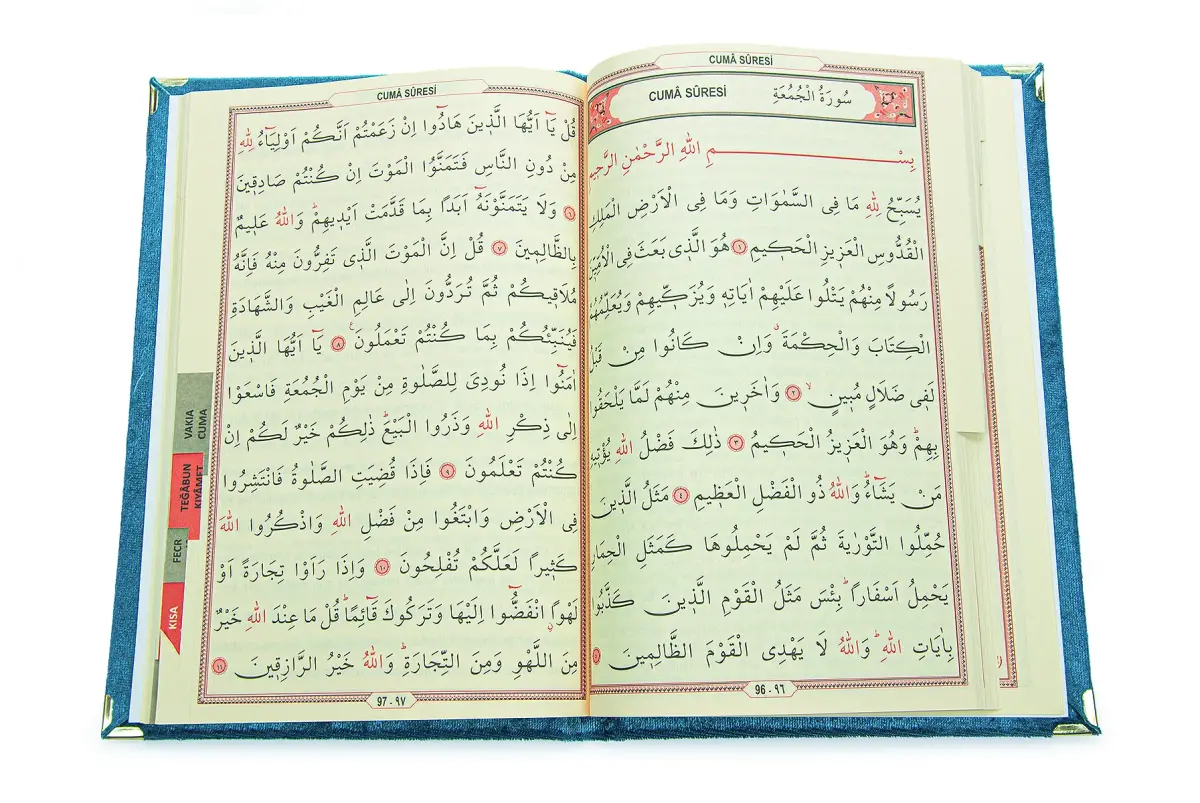 CUMÂ SÛRESİ
CUMÂ SÛRESİ سُورَةُ الْجُمُعَةِ
بِسْــــــــــمِ اللهِ الرَّحْمٰنِ الرَّحِيمِ
يُسَبِّحُ لِلّٰهِ مَا فِى السَّمٰوَاتِ وَمَا فِى الْاَرْضِ الْمَلِكِ
الْقُدُّوسِ الْعَزِيزِ الْحَكِيمِ ﴿١﴾ هُوَ الَّذِى بَعَثَ فِى الْاُمِّيّ۪نَ
رَسُولًا مِنْهُمْ يَتْلُوا عَلَيْهِمْ اٰيَاتِهٖ وَيُزَكّ۪يهِمْ وَيُعَلِّمُهُمُ
الْكِتَابَ وَالْحِكْمَةَۗ وَاِنْ كَانُوا مِنْ قَبْلُ
لَفٖى ضَلَالٍ مُبٖينٍۙ ﴿٢﴾ وَاٰخَرٖينَ مِنْهُمْ لَمَّا يَلْحَقُوا
بِهِمْۜ وَهُوَ الْعَزٖيزُ الْحَكٖيمُ ﴿٣﴾ ذٰلِكَ فَضْلُ اللهِ يُؤْتٖيهِ
مَنْ يَشَٓاءُۜ وَاللهُ ذُو الْفَضْلِ الْعَظٖيمِ ﴿٤﴾ مَثَلُ الَّذٖينَ
حُمِّلُوا التَّوْرٰيةَ ثُمَّ لَمْ يَحْمِلُوهَا كَمَثَلِ الْحِمَارِ
يَحْمِلُ اَسْفَارًاۜ بِئْسَ مَثَلُ الْقَوْمِ الَّذٖينَ كَذَّبُوا
بِاٰيَاتِ اللهِۜ وَاللهُ لَا يَهْدِى الْقَوْمَ الظَّالِمٖينَ ﴿٥﴾
96 - ٩٦
CUMÂ SÛRESİ
قُلْ يَٓا اَيُّهَا الَّذٖينَ هَادُٓوا اِنْ زَعَمْتُمْ اَنَّكُمْ اَوْلِيَٓاءُ لِلّٰهِ
مِنْ دُونِ النَّاسِ فَتَمَنَّوُا الْمَوْتَ اِنْ كُنْتُمْ صَادِقٖينَ
﴿٦﴾ وَلَا يَتَمَنَّوْنَهُٓ اَبَدًا بِمَا قَدَّمَتْ اَيْدٖيهِمْۜ وَاللهُ عَلٖيمٌ
بِالظَّالِمٖينَ ﴿٧﴾ قُلْ اِنَّ الْمَوْتَ الَّذٖى تَفِرُّونَ مِنْهُ فَاِنَّهُ
مُلَاقٖيكُمْ ثُمَّ تُرَدُّونَ اِلٰى عَالِمِ الْغَيْبِ وَالشَّهَادَةِ
فَيُنَبِّئُكُمْ بِمَا كُنْتُمْ تَعْمَلُونَ ﴿٨﴾ يَٓا اَيُّهَا الَّذٖينَ
اٰمَنُٓوا اِذَا نُودِىَ لِلصَّلٰوةِ مِنْ يَوْمِ الْجُمُعَةِ فَاسْعَوْا
اِلٰى ذِكْرِ اللهِ وَذَرُوا الْبَيْعَۜ ذٰلِكُمْ خَيْرٌ لَكُمْ اِنْ
كُنْتُمْ تَعْلَمُونَ ﴿٩﴾ فَاِذَا قُضِيَتِ الصَّلٰوةُ فَانْتَشِرُوا
فِى الْاَرْضِ وَابْتَغُوا مِنْ فَضْلِ اللهِ وَاذْكُرُوا اللهَ
كَثٖيرًا لَعَلَّكُمْ تُفْلِحُونَ ﴿١٠﴾ وَاِذَا رَاَوْا تِجَارَةً اَوْ
لَهْوًا ۨانْفَضُّٓوا اِلَيْهَا وَتَرَكُوكَ قَٓائِمًاۜ قُلْ مَا عِنْدَ اللهِ خَيْرٌ
مِنَ اللَّهْوِ وَمِنَ التِّجَارَةِۜ وَاللهُ خَيْرُ الرَّازِقٖينَ ﴿١١﴾
97 - ٩٧
VAKIA
CUMA
TEĞÂBUN
KIYÂMET
FECR
KISA